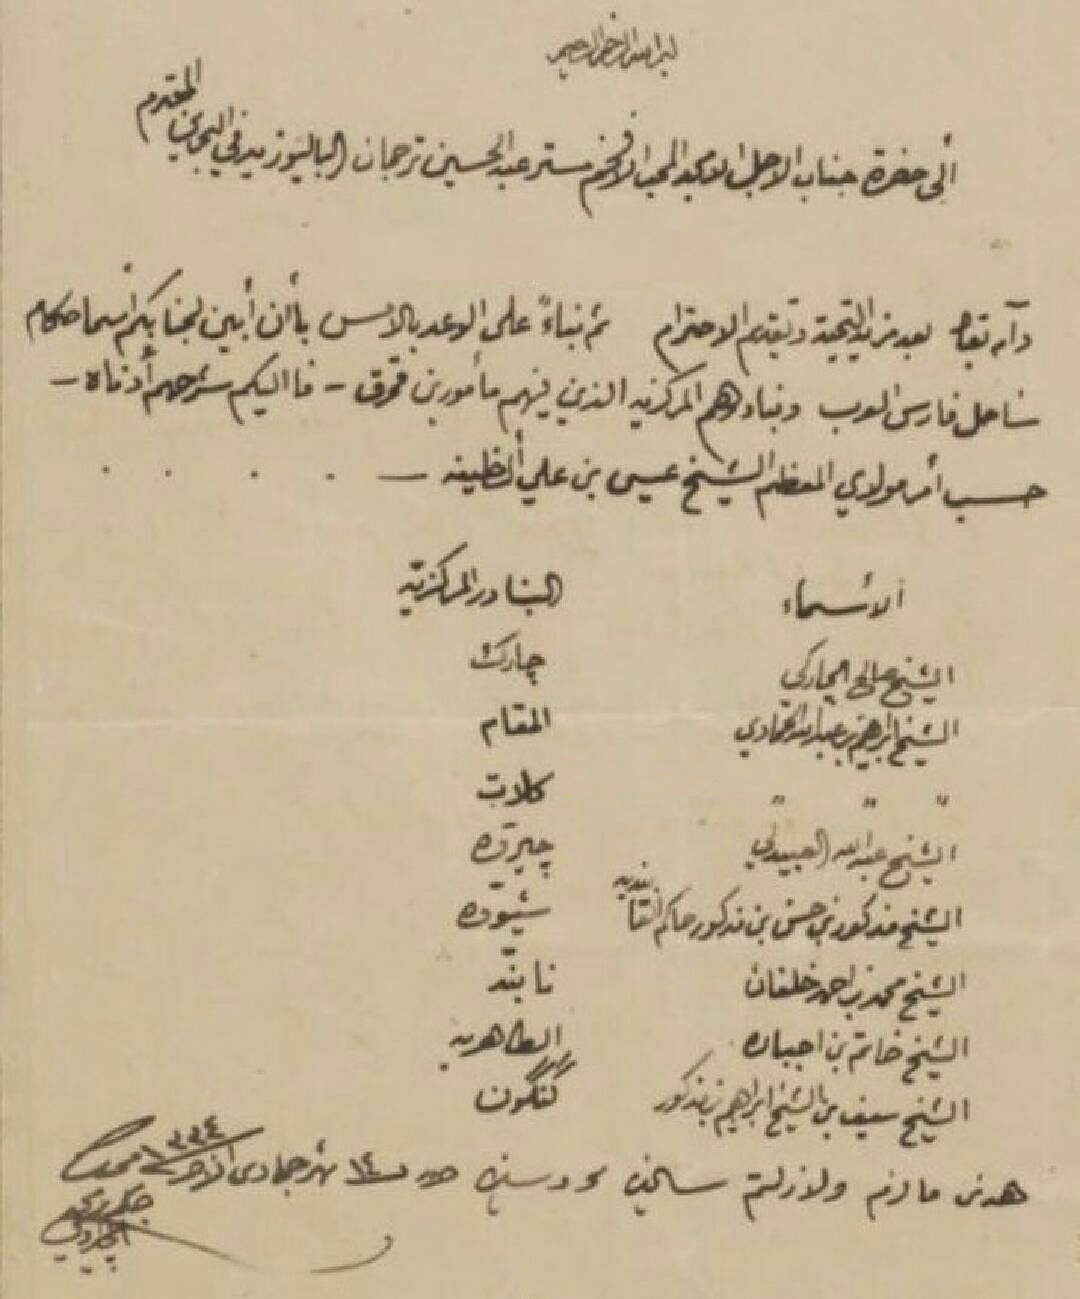 بسم الله الرحمن الرحيم
المحترم
ألى حضرة جناب الاجل الامجد المحب الافخم مستر عبد الحسين ترجمان الباليوزيه في البحرين
دام بقاه بعد مزيد التحية وتقديم الاحترام ثم بناءً على الوعد بالامس بأن أبين لجنابكم أسما حكام
ساحل فارس العرب وبنادرهم المركزيه الذين فيهم مأمورين قمرق - فااليكم شرحهم أدناه -
حسب أمر مولاي المعظم الشيخ عيسى بن علي الخليفه - . . . .
الأسماء البنادر المركزية
الشيخ صالح الچاركي چارك
الشيخ ابراهيم بن عبدالله الحمادي المقام
" " " كلات
الشيخ عبدالله العبيدلي چيرويه
الشيخ مذكور بن حسن بن مذكور حاكم القابنديه شيوه
الشيخ محمد بن احمد خلفان نابند
الشيخ حاتم بن اجباره الطاهريه
الشيخ سيف بن الشيخ ابراهيم بن مذكور كنگون
هذا ما لزم ولازلتم سالمين محروسين ١٤ شهر جمادى الاخر ١٣٣٤
محمد